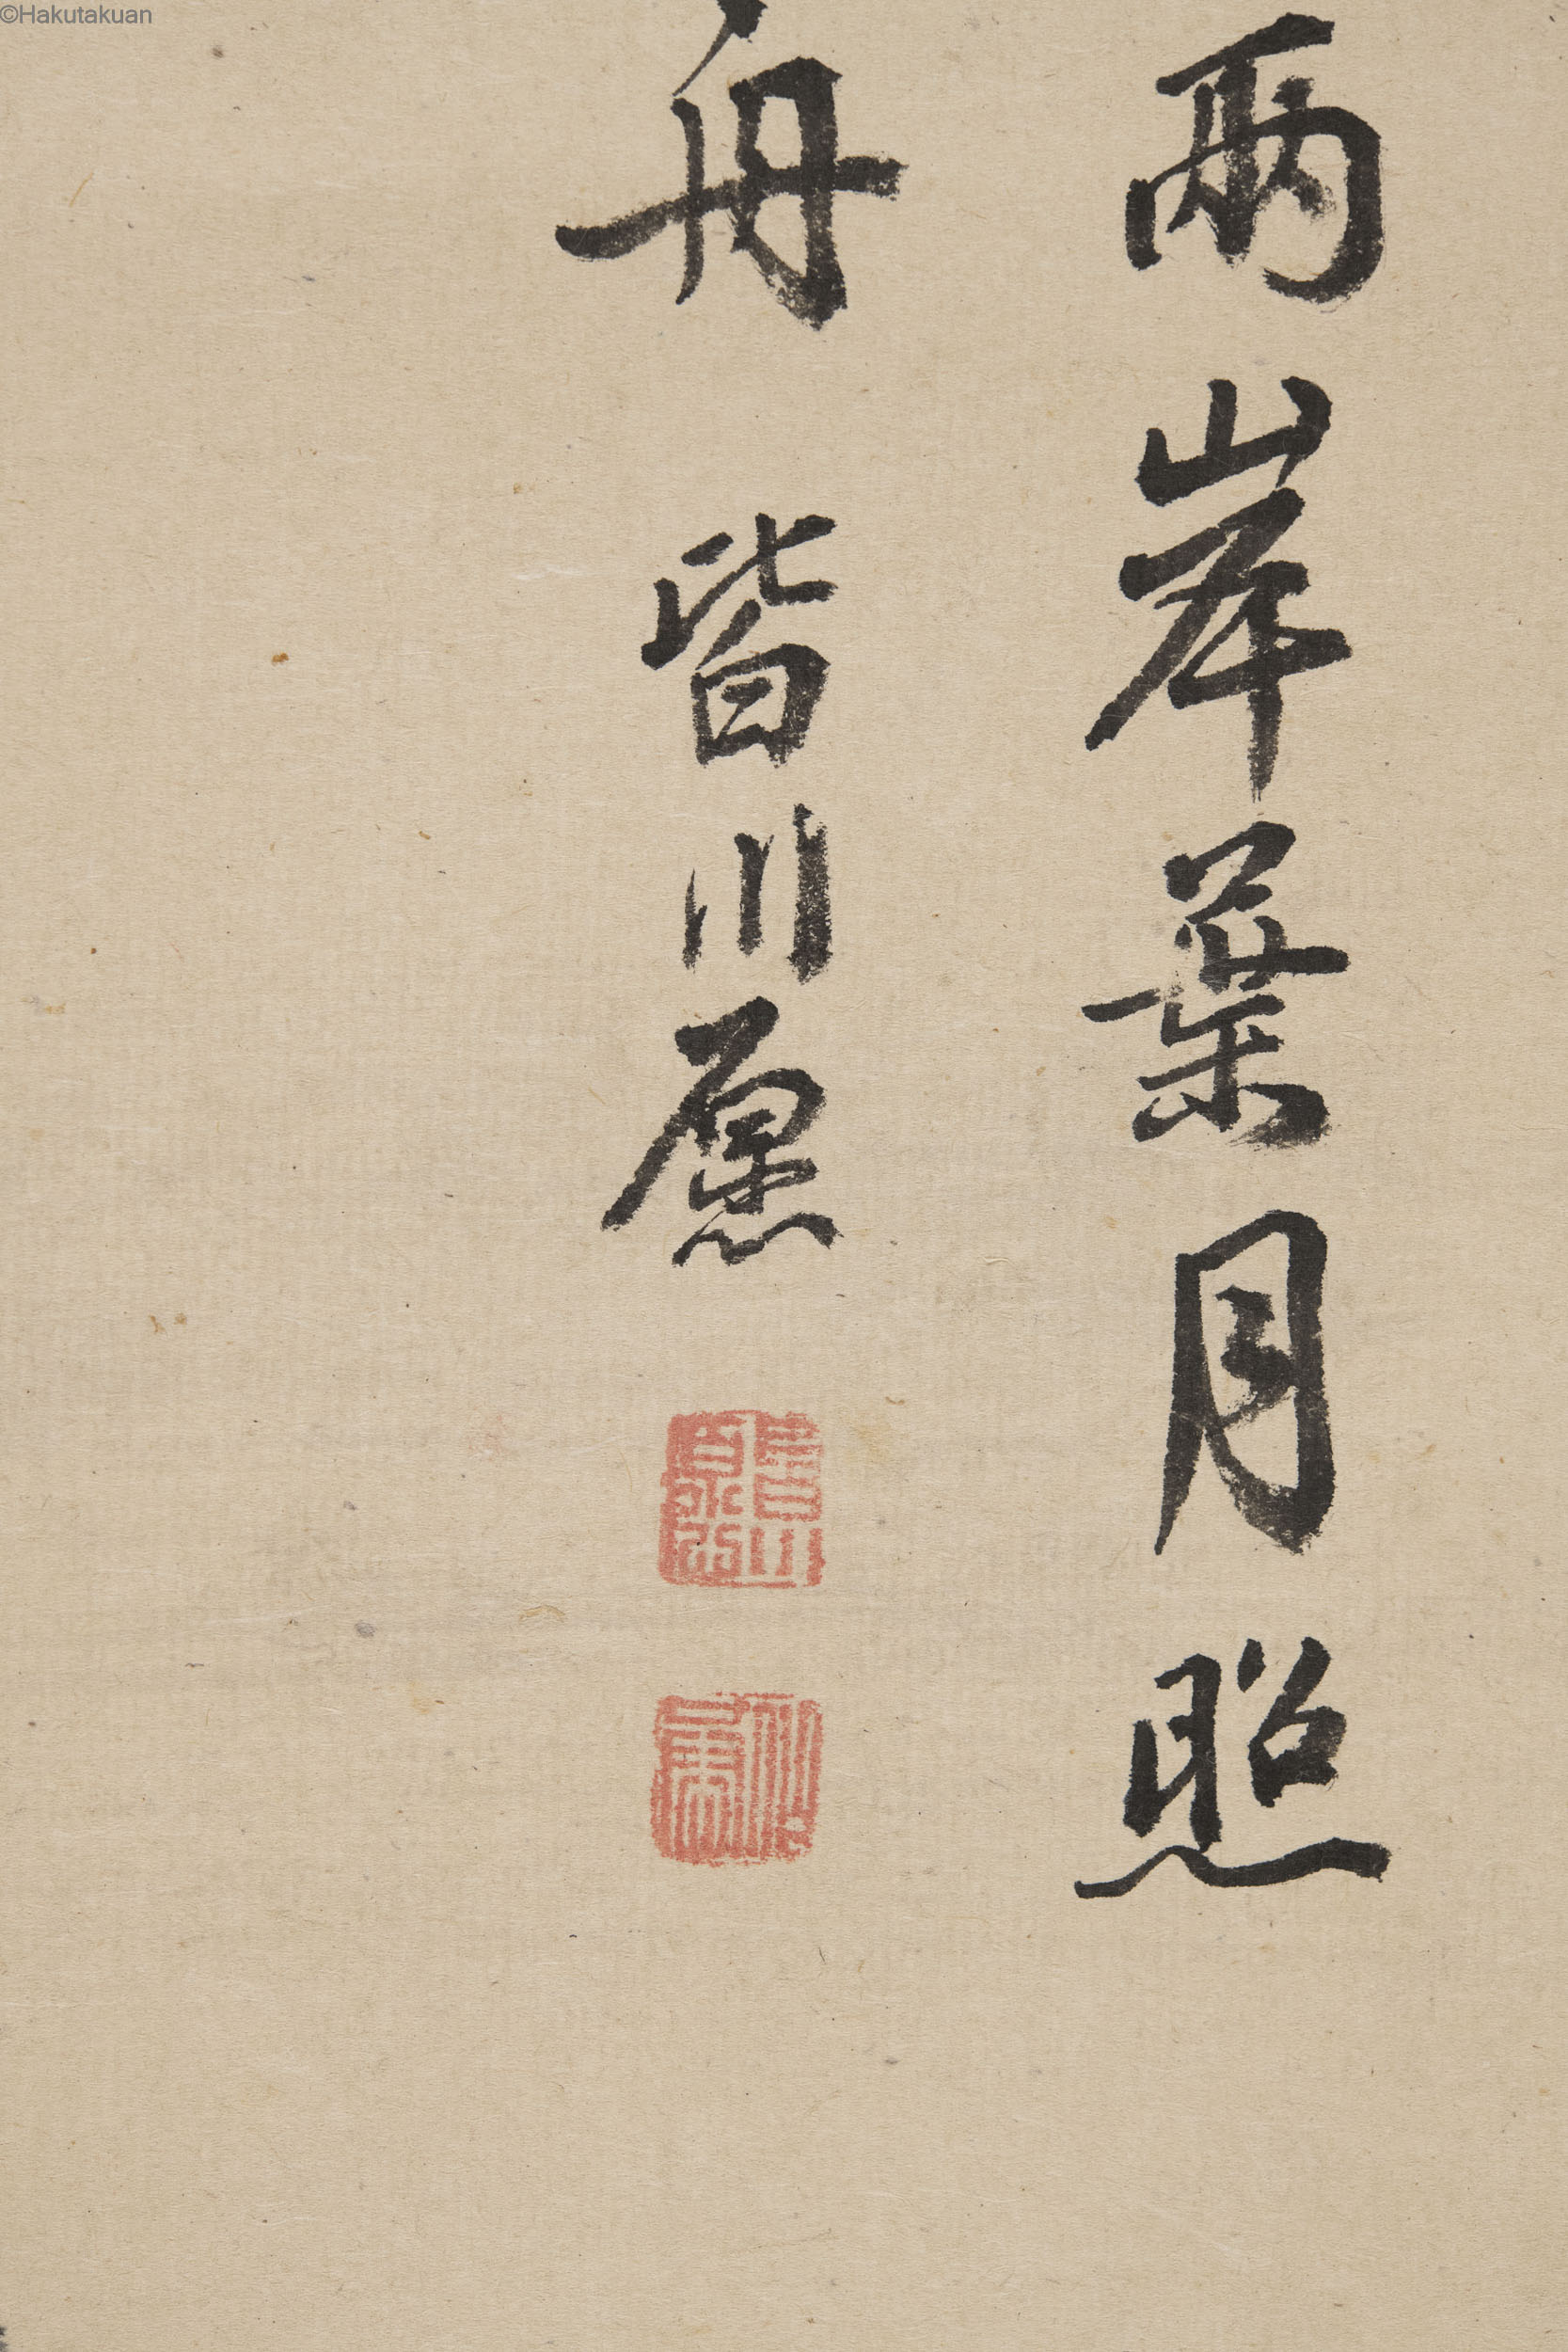 ©Hakutakuan
兩岸葉月照
舟 皆川愿